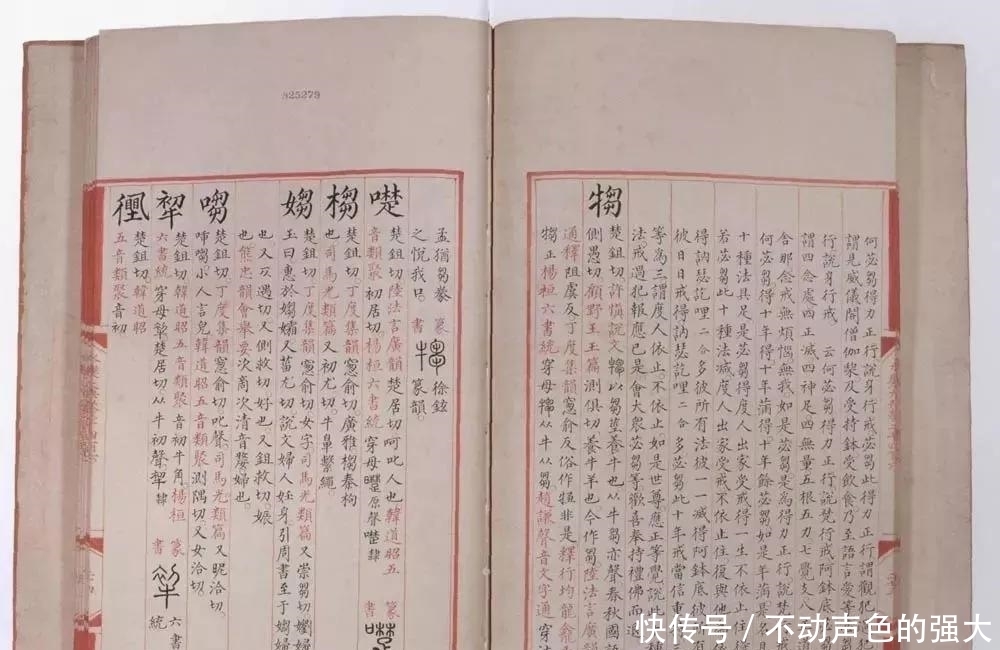 825279
何苾芻得刀正行說身行戒苾芻此得刀正行謂觀犯
謂是威儀開僧伽梨及受持鉢受飲食乃至語言愛等
行說身行戒 云何苾芻得刀正行說梵行戒阿鉢底
謂四念處四正滅四神足四無量五根五刀七覺支八
舍那念戒無煩惱無我如是苾芻是為得刀正行說梵
何苾芻得十年得十年滿得十年餘苾芻如是年滿是名
十種法具足是苾芻得度人出家受戒得一生不依止住
若苾芻此十種法減度人出家受戒不依止住復與他
得訥瑟訖哩二合多彼所有法彼一一減得阿鉢底彼
彼日日戒得訥瑟訖哩二合多苾芻此十年戒當信重
等為三謂度人依止不依止如是世尊應正等覺說此種
法戒過犯報應已是會大眾苾芻等歡喜奉持禮佛而退
犓
楚鉏切許慎說文犓以芻莝養牛也从牛芻亦聲春秋國
側愚切顧野王玉篇測俱切養牛羊也今作芻陸法言廣韻
通釋阻虞反丁度集韻窻俞反俗作非是釋行均龍龕
犓正楊桓六書統穿母犓从牛从芻趙謙聲音文字通穿
孟猶芻豢 篆書 徐鉉
之悅我口 篆韻
楚鉏切陸法言廣韻楚居切呵叱人也韓道昭五
音類聚初居切楊桓六書統穿母原聲隸
㮳
楚鉏切丁度集韻窻俞切廣雅㮳㮏枸
也司馬光類篇又初尤切牛鼻繫繩
媰
楚鉏切丁度集韻窻俞切女字司馬光類篇又崇芻切
玉曰惠於媰孀又菑尤切說文婦人妊身引周書至于媰婦
也又仄遇切又側救切好也又鉏救切娠
也熊忠韻會舉要次商次清音嫠婦也
㗙
楚鉏切丁度集韻窻俞切叱聲司馬光類篇又昵洽切
小人言皃韓道昭五音類聚測隅切又女洽切
楚鉏切韓道昭五音類聚音初牛角楊桓
六書統穿母楚居切从牛初聲 隸 篆書 六書統
楚鉏切韓道昭
五音類聚音初
快传号 / 不动声色的强大